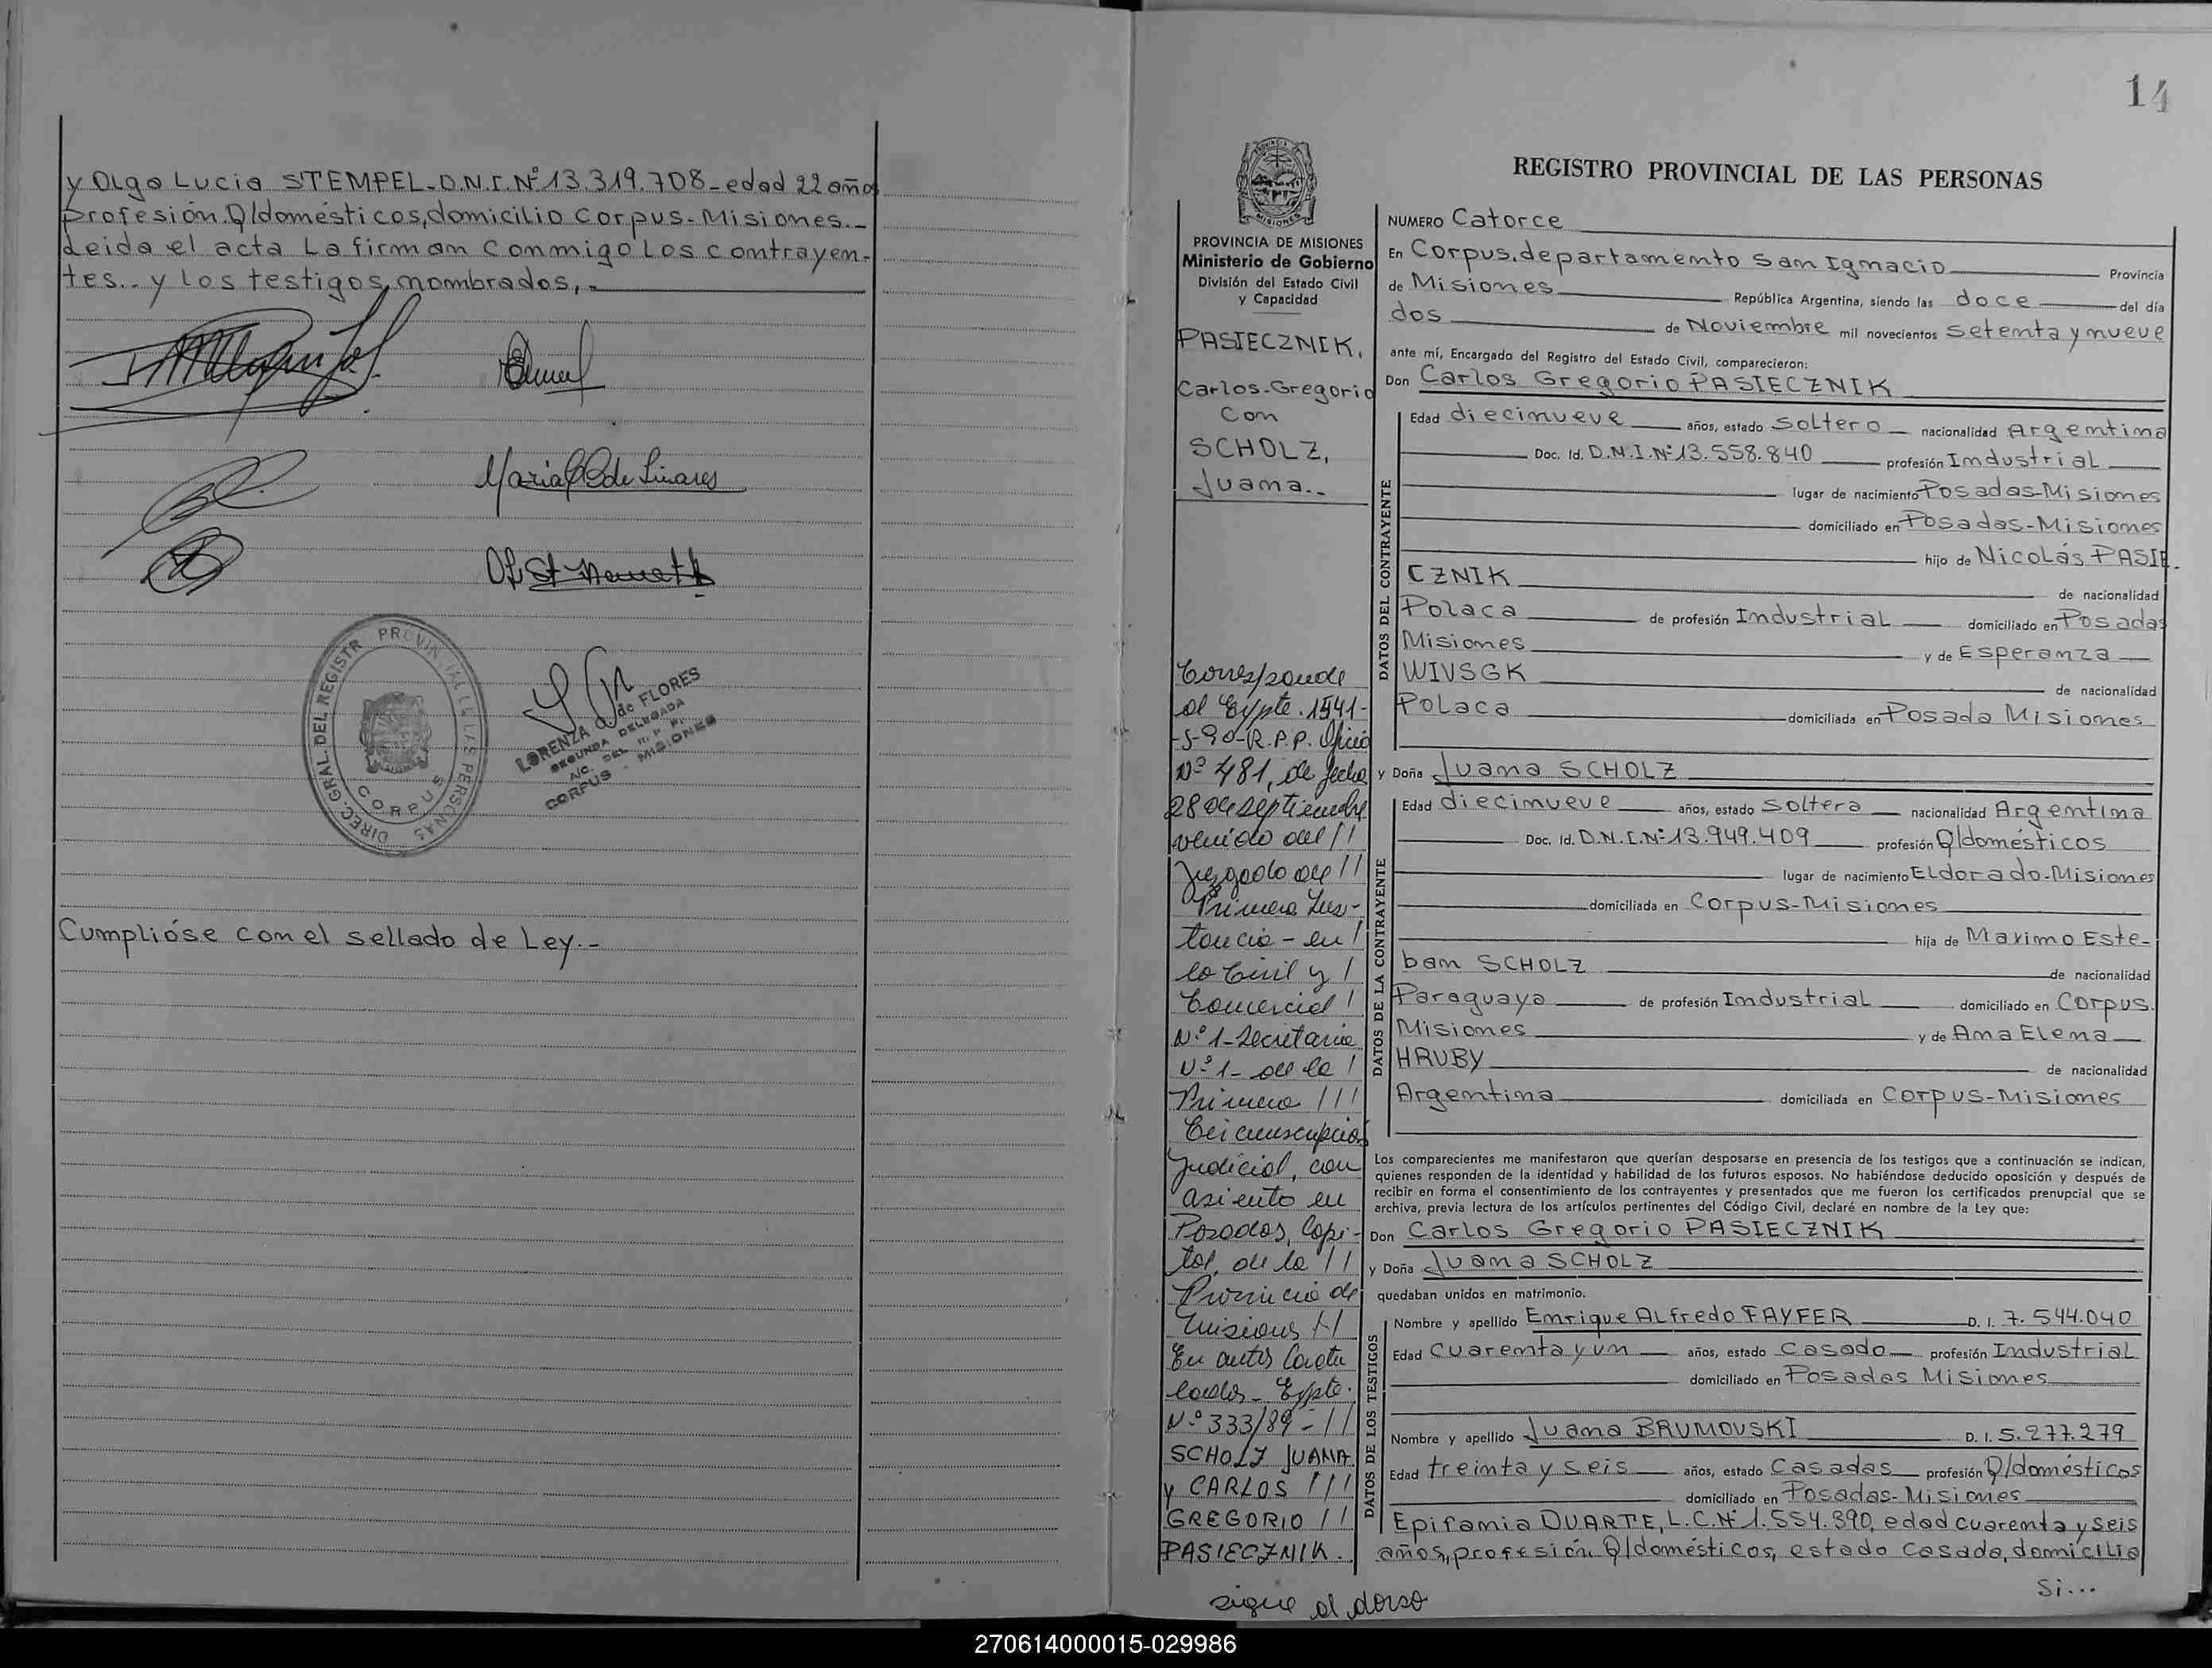 y Olga Lucia STEMPEL-D.N.I.Nº13.319.708-edad 22 años
profesión.Q/domésticos,domicilio Corpus-Misiones.-
Leida el acta La firman conmigo Los contrayen-
tes.. y los testigos nombrados,.-
Maria de Linares
DIREC. GRAL. DEL REGISTR. PROVINCIAL DE LAS PERSONAS
CORPUS
LORENZA de FLORES
SEGUNDA DELEGADA
A/C. DEL R. P. P.
CORPUS - MISIONES
Cumplióse con el sellado de Ley.-
14
MISIONES
PROVINCIA DE MISIONES
Ministerio de Gobierno
División del Estado Civil
y Capacidad
PASIECZNIK,
Carlos-Gregorio
Con
SCHOLZ,
Juana.-
Corresponde
al Expte.1541-
-S-90-R.P.P. Oficio
Nº 481, de fecha
28 de septiembre
venido del //
Juzgado de //
Primera Ins-
tancia - en /
lo Civil y /
Comercial /
Nº 1-Secretaria
Nº 1- de la /
Primera ///
Circunscripción
Judicial, con
asiento en
Posadas, Capi-
tal, de la //
Provincia de
Misiones //
En autos Caratu
lados- Expte.
Nº 333/89-//
SCHOLZ JUANA
y CARLOS ///
GREGORIO //
PASIECZNIK.
sigue al dorso
REGISTRO PROVINCIAL DE LAS PERSONAS
NUMERO Catorce
En Corpus.departamento San Ignacio Provincia
de Misiones República Argentina, siendo las doce del día
dos de Noviembre mil novecientos setenta y nueve
ante mí, Encargado del Registro del Estado Civil, comparecieron:
Don Carlos Gregorio PASIECZNIK
DATOS DEL CONTRAYENTE
Edad diecinueve años, estado soltero nacionalidad Argentina
Doc. Id. D.N.I.Nº13.558.840 profesión Industrial
lugar de nacimiento Posadas-Misiones
domiciliado en Posadas-Misiones
hijo de Nicolás PASIE-
CZNIK de nacionalidad
Polaca de profesión Industrial domiciliado en Posadas
Misiones y de Esperanza
WIVSGK de nacionalidad
Polaca domiciliada en Posada Misiones
y Doña Juana SCHOLZ
DATOS DE LA CONTRAYENTE
Edad diecinueve años, estado soltera nacionalidad Argentina
Doc. Id. D.N.I.Nº13.949.409 profesión Q/domésticos
lugar de nacimiento ELdorado-Misiones
domiciliada en Corpus-Misiones
hija de Maximo Este-
ban SCHOLZ de nacionalidad
Paraguaya de profesión Industrial domiciliado en Corpus.
Misiones y de Ana Elena
HRUBY de nacionalidad
Argentina domiciliada en Corpus-Misiones
Los comparecientes me manifestaron que querían desposarse en presencia de los testigos que a continuación se indican,
quienes responden de la identidad y habilidad de los futuros esposos. No habiéndose deducido oposición y después de
recibir en forma el consentimiento de los contrayentes y presentados que me fueron los certificados prenupcial que se
archiva, previa lectura de los artículos pertinentes del Código Civil, declaré en nombre de la Ley que:
Don Carlos Gregorio PASIECZNIK
y Doña Juana SCHOLZ
quedaban unidos en matrimonio.
DATOS DE LOS TESTIGOS
Nombre y apellido Enrique ALfredo FAYFER D. I. 7.544.040
Edad Cuarenta y un años, estado Casado profesión Industrial
domiciliado en Posadas Misiones
Nombre y apellido Juana BRUMOVSKI D. I. 5.277.279
Edad treinta y seis años, estado Casadas profesión Q/domésticos
domiciliado en Posadas-Misiones
Epifania DUARTE, L.C.Nº1.554.390, edad cuarenta y seis
años,profesión Q/domésticos, estado casada, domicilio
Si...
270614000015-029986